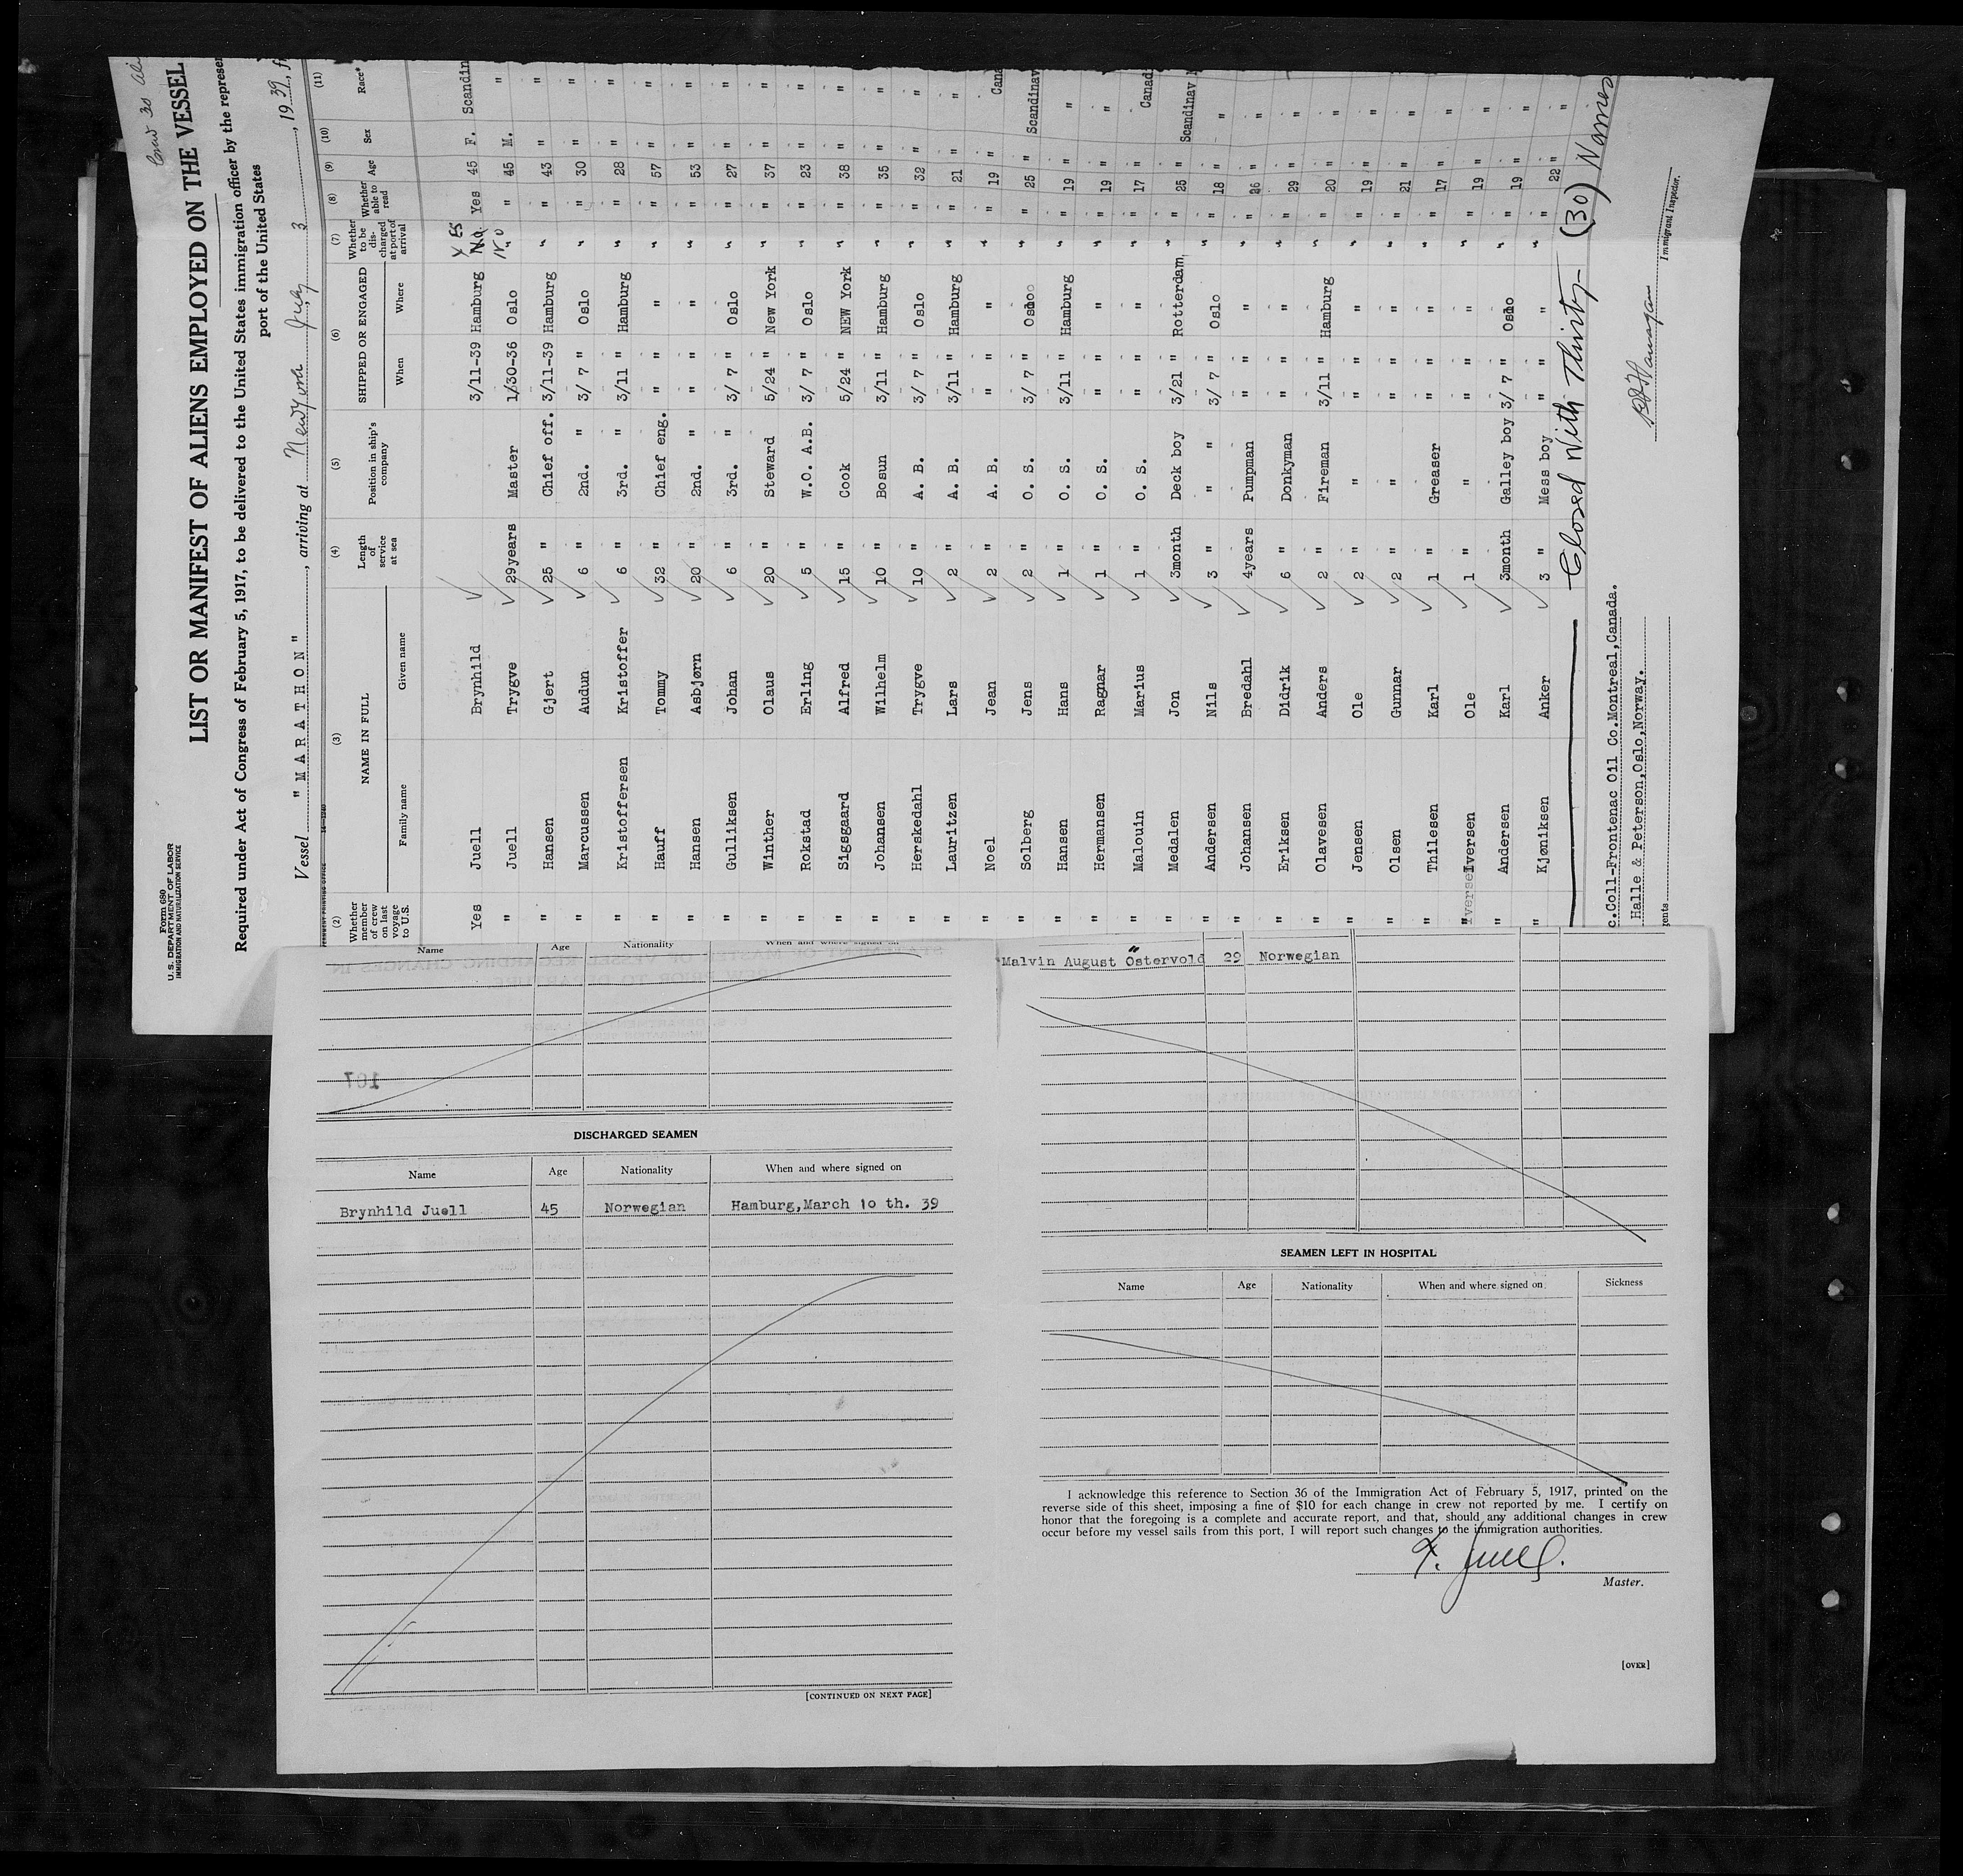 Form 680
U. S. DEPARTMENT OF LABOR
IMMIGRATION AND NATURALIZATION SERVICE
Crew 30
LIST OR MANIFEST OF ALIENS EMPLOYED ON THE VESSEL
Required under Act of Congress of February 5, 1917, to be delivered to the United States immigration officer by the represen
port of the United States
Vessel " MARATHON ", arriving at New York July 3, 1939, fr
(2) (3) (4) (5) (6) (7) (8) (9) (10) (11)
Whether member of crew on last voyage to U.S. NAME IN FULL Length of service at sea Position in ship's company SHIPPED OR ENGAGED Whether to be discharged at port of arrival Whether able to read Age Sex Race*
Family name Given name When Where
Yes Juell Brynhild 3/11-39 Hamburg No. Yes Yes 45 F. Scandin
" Juell Trygve 29years Master 1/30-36 Oslo " no " 45 M. "
" Hansen Gjert 25 " Chief off. 3/11-39 Hamburg " " 43 " "
" Marcussen Audun 6 " 2nd. " 3/ 7 " Oslo " " 30 " "
" Kristoffersen Kristoffer 6 " 3rd. " 3/11 " Hamburg " " 28 " "
" Hauff Tommy 32 " Chief eng. " " " " " 57 " "
" Hansen Asbjørn 20 " 2nd. " " " " " " 53 " "
" Gulliksen Johan 6 " 3rd. " 3/ 7 " Oslo " " 27 " "
" Winther Olaus 20 " Steward 5/24 " New York " " 37 " "
" Rokstad Erling 5 " W.O. A.B. 3/ 7 " Oslo " " 23 " "
" Sigsgaard Alfred 15 " Cook 5/24 " NEW York " " 38 " "
" Johansen Wilhelm 10 " Bosun 3/11 " Hamburg " " 35 " "
" Herskedahl Trygve 10 " A. B. 3/ 7 " Oslo " " 32 " "
" Lauritzen Lars 2 " A. B. 3/11 " Hamburg " " 21 " "
" Noel Jean 2 " A. B. " " " " " 19 " Cana
" Solberg Jens 2 " O. S. 3/ 7 " Osloo " " 25 " Scandinav
" Hansen Hans 1 " O. S. 3/11 " Hamburg " " 19 " "
" Hermansen Ragnar 1 " O. S. " " " " " 19 " "
" Malouin Marius 1 " O. S. " " " " " 17 " Canad
" Medalen Jon 3month Deck boy 3/21 " Rotterdam, " " 25 " Scandinav
" Andersen Nils 3 " " " 3/ 7 " Oslo " " 18 " "
" Johansen Bredahl 4years Pumpman " " " " " 26 " "
" Eriksen Didrik 6 " Donkyman " " " " " 29 " "
" Olavesen Anders 2 " Fireman 3/11 " Hamburg " " 20 " "
" Jensen Ole 2 " " " " " " " 19 " "
" Olsen Gunnar 2 " " " " " " " 21 " "
" Thilesen Karl 1 " Greaser " " " " " 17 " "
" Iversen Ole 1 " " " " " " " 19 " "
" Andersen Karl 3month Galley boy 3/ 7 " Oslo " " 19 " "
" Kjøniksen Anker 3 " Mess boy " " " " " 22 " "
Closed With Thirty (30) Names
c.Coll-Frontenac Oil Co.Montreal,Canada.
Halle & Peterson,Oslo,Norway.
gents
Immigrant Inspector.
Name Age Nationality When and where signed on
167
DISCHARGED SEAMEN
Name Age Nationality When and where signed on
Brynhild Juell 45 Norwegian Hamburg,March 10 th. 39
[CONTINUED ON NEXT PAGE]
Malvin August Östervold 29 Norwegian
SEAMEN LEFT IN HOSPITAL
Name Age Nationality When and where signed on Sickness
I acknowledge this reference to Section 36 of the Immigration Act of February 5, 1917, printed on the
reverse side of this sheet, imposing a fine of $10 for each change in crew not reported by me. I certify on
honor that the foregoing is a complete and accurate report, and that, should any additional changes in crew
occur before my vessel sails from this port, I will report such changes to the immigration authorities.
T. Juell.
Master.
[OVER]